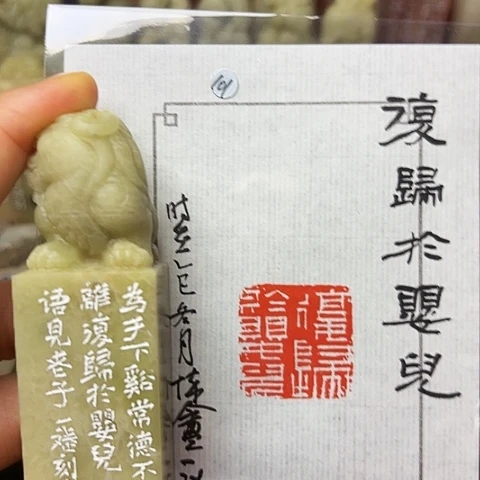 復歸於嬰兒
復歸
於嬰兒
時在乙巳冬月
為天下谿常德不
離復歸於嬰兒
語見老子一刻